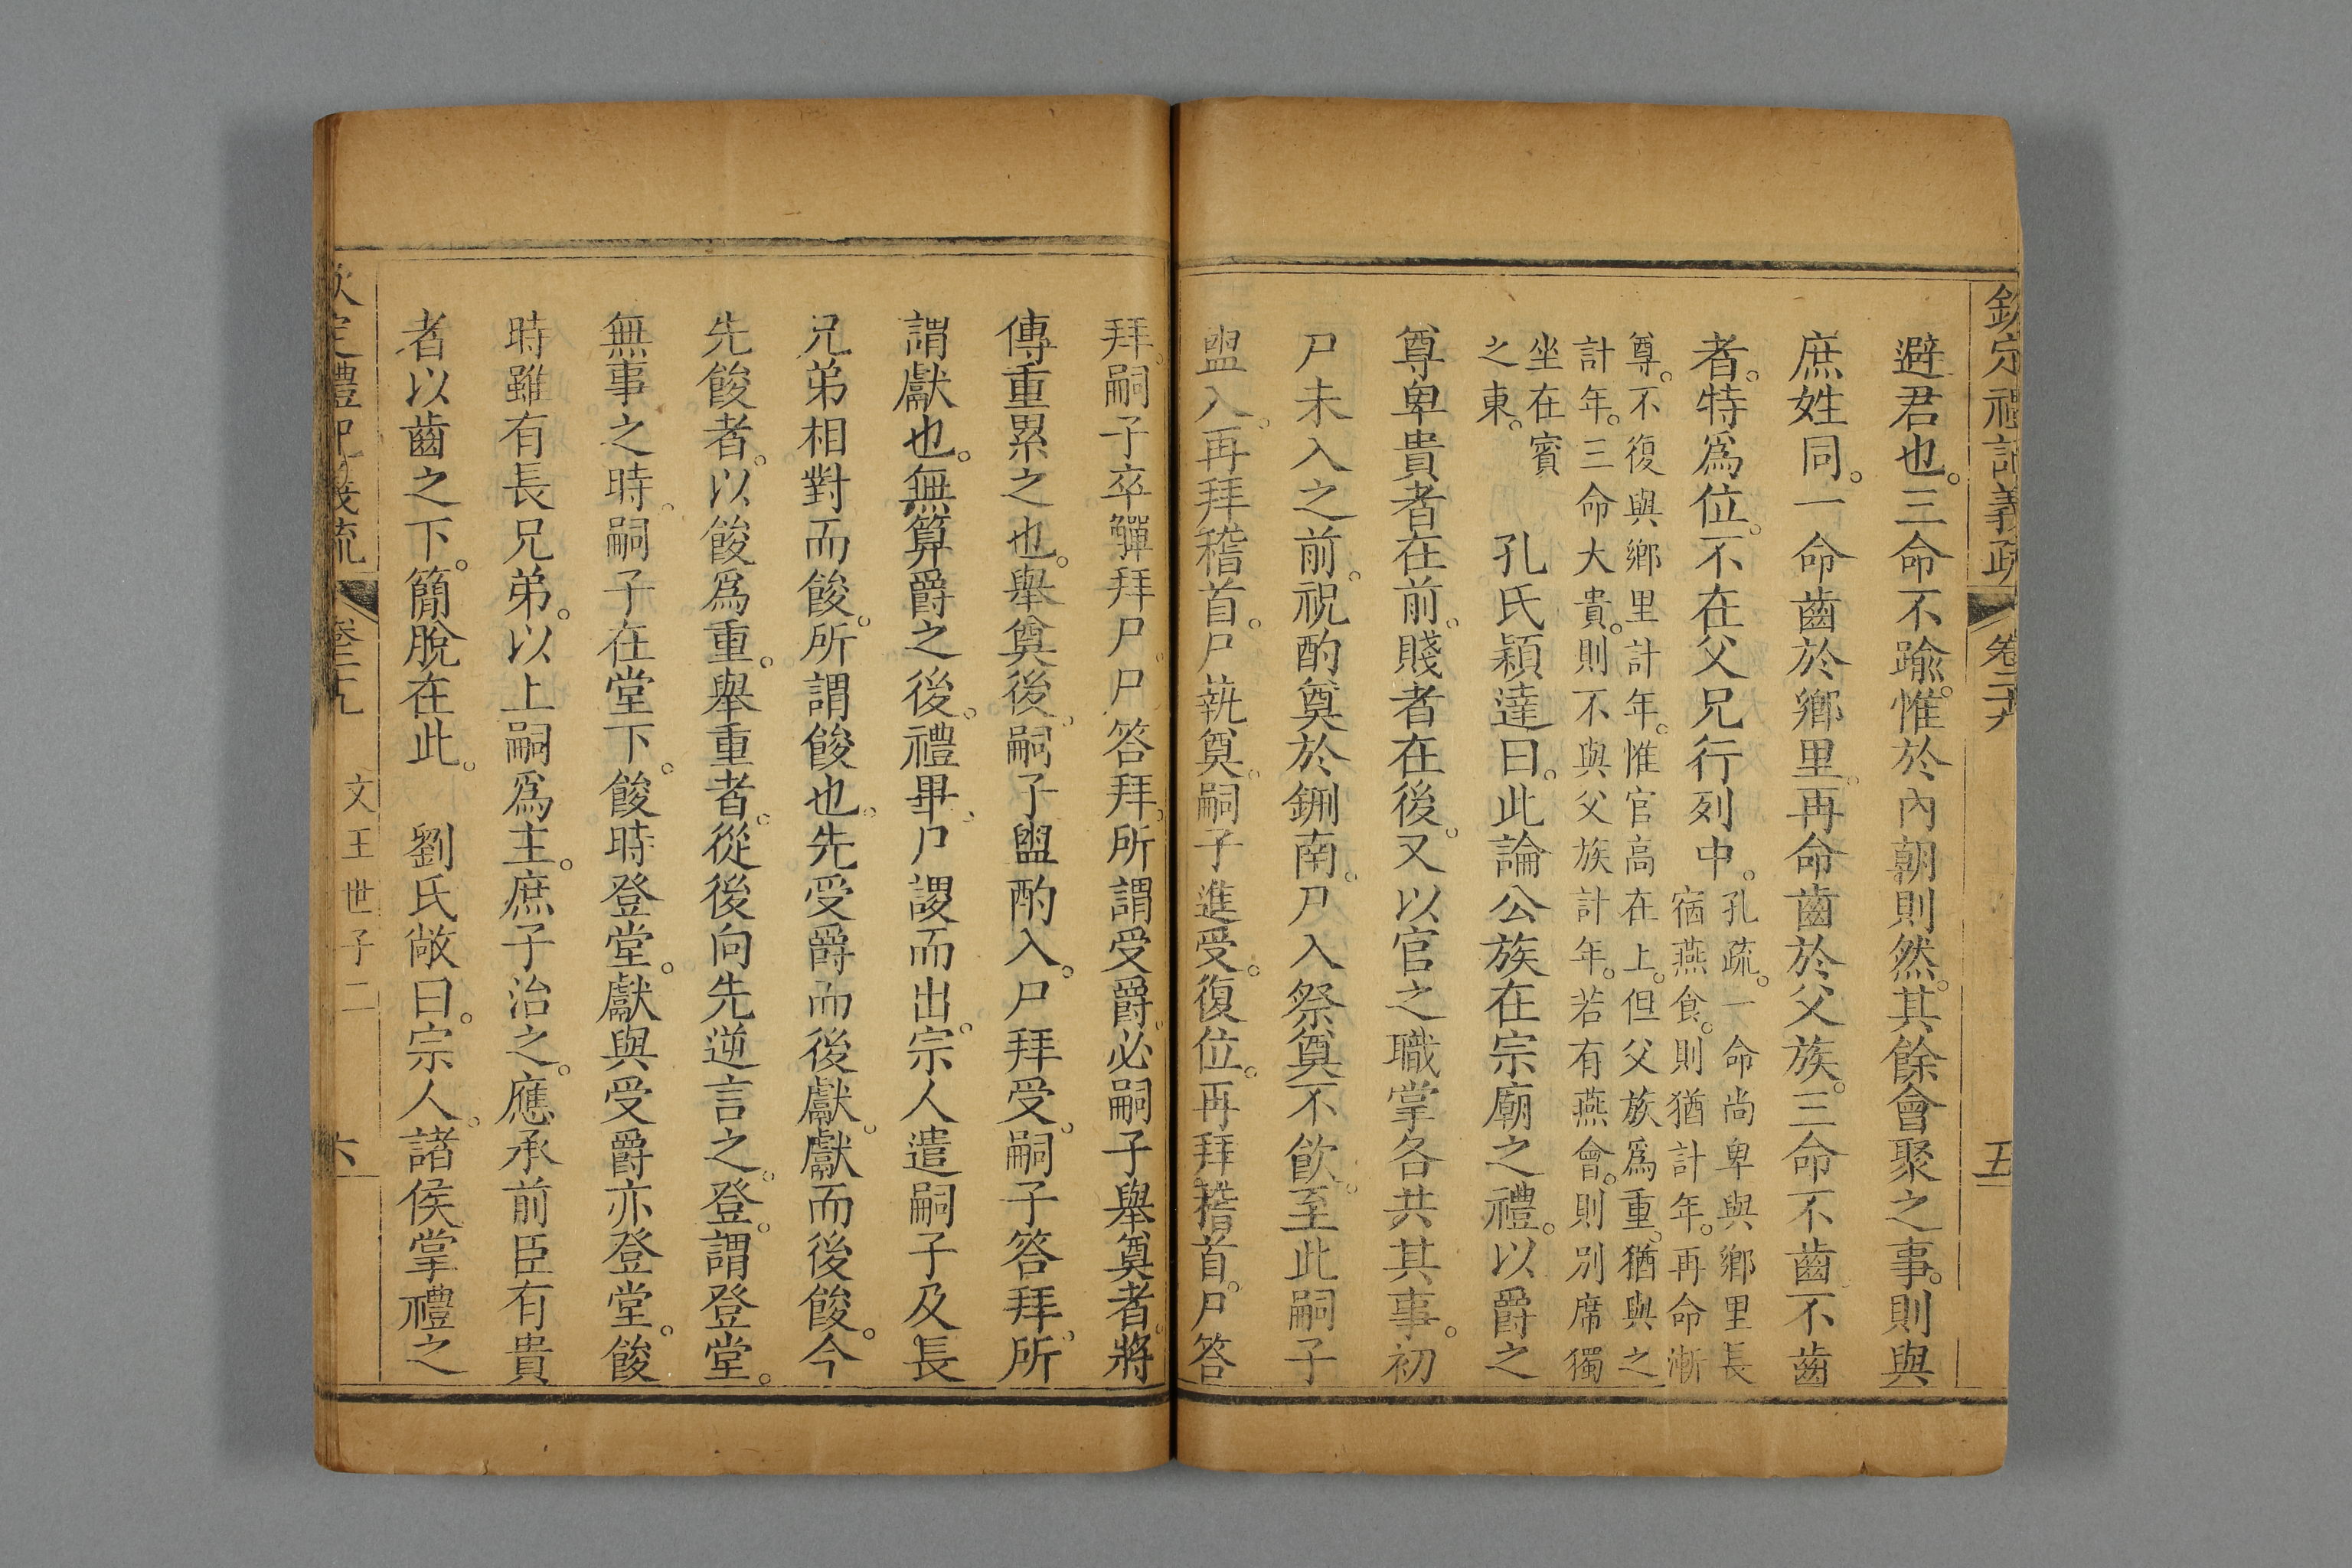 欽定禮記義疏 卷二十九 五
避君也。三命不踰。惟於內朝則然。其餘會聚之事。則與
庶姓同。一命齒於鄉里。再命齒於父族。三命不齒。不齒
者。特爲位。不在父兄行列中。孔疏。一命尚卑與鄉里長
宿燕食。則猶計年。再命漸
尊。不復與鄉里計年。惟官高在上。但父族爲重。猶與之
計年。三命大貴。則不與父族計年。若有燕會。則別席獨
坐在賓
之東。
孔氏穎達曰。此論公族在宗廟之禮。以爵之
尊卑貴者在前。賤者在後。又以官之職掌各共其事。初
尸未入之前。祝酌奠於鉶南。尸入祭奠不飮。至此嗣子
盥入。再拜稽首。尸執奠。嗣子進受。復位。再拜稽首。尸答
拜。嗣子卒觶拜尸。尸答拜。所謂受爵。必嗣子舉奠者。將
傳重累之也。舉奠後。嗣子盥酌入。尸拜受。嗣子答拜。所
謂獻也。無算爵之後。禮畢、尸謖而出。宗人遣嗣子及長
兄弟相對而餕。所謂餕也。先受爵而後獻。獻而後餕。今
先餕者。以餕爲重。舉重者。從後向先逆言之。登。謂登堂。
無事之時。嗣子在堂下。餕時登堂。獻與受爵亦登堂。餕
時雖有長兄弟。以上嗣爲主。庶子治之。應承前臣有貴
者以齒之下。簡脫在此。 劉氏敞曰。宗人。諸侯掌禮之
欽定禮記義疏 卷二十九 文王世子二 六